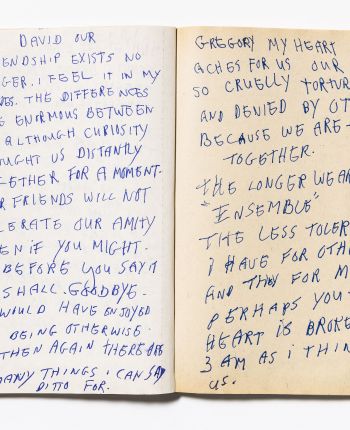 DAVID OUR
ENDSHIP EXISTS NO
GER. I FEEL IT IN MY
ES. THE DIFFERENCES
E ENORMOUS BETWEEN
ALTHOUGH CURIOSITY
UGHT US DISTANTLY
ETHER FOR A MOMENT.
R FRIENDS WILL NOT
LERATE OUR AMITY
EN IF YOU MIGHT.
BEFORE YOU SAY IT
SHALL. GOODBYE.
WOULD HAVE ENJOYED
BEING OTHERWISE.
THEN AGAIN THERE ARE
MANY THINGS I CAN SAY
DITTO FOR.
GREGORY MY HEART
ACHES FOR US OUR
SO CRUELLY TORTUR
AND DENIED BY OT
BECAUSE WE ARE
TOGETHER.
THE LONGER WE AR
"ENSEMBLE"
THE LESS TOLER
I HAVE FOR OTH
AND THEY FOR M
PERHAPS YOU
HEART IS BROKE
3 AM AS I THIN
US.